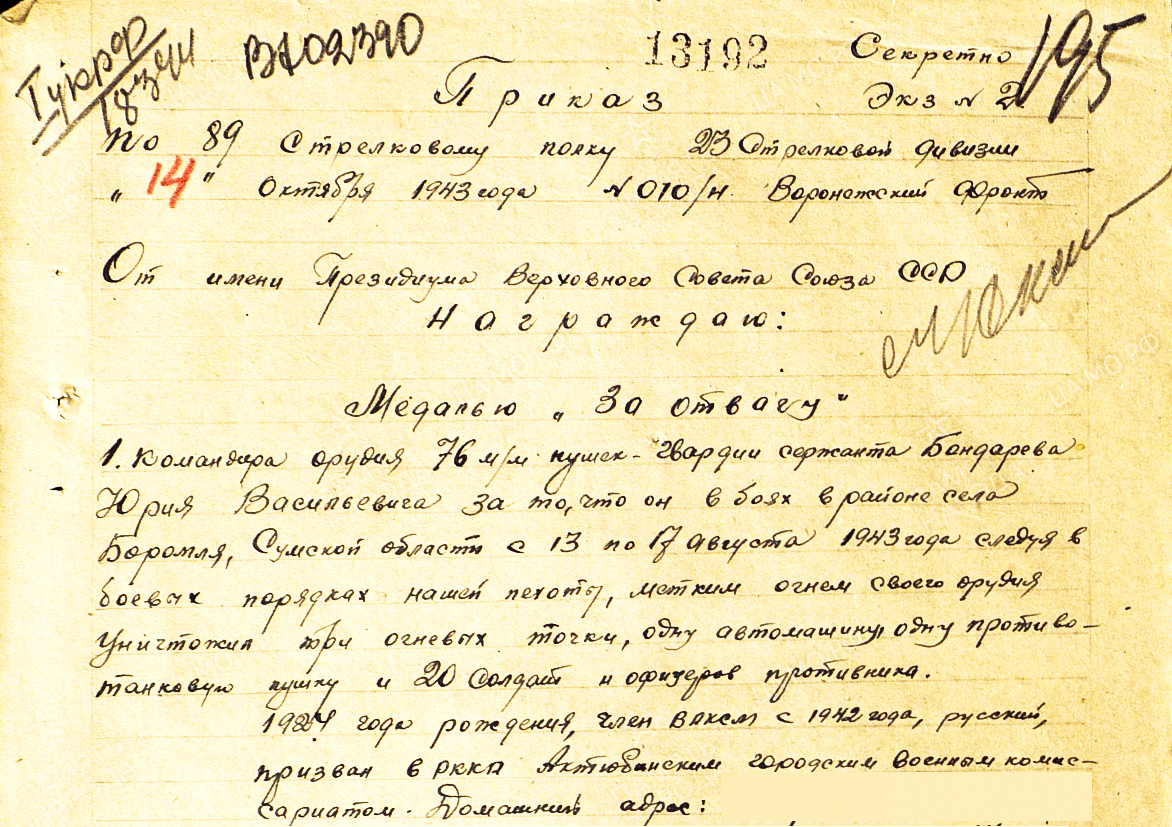 В702390
13192
Секретно
195
Приказ
Экз N 2
по 89 Стрелковому полку 23 Стрелковой дивизии
"14" Октября 1943 года N 010/н Воронежский Фронт
От имени Президиума Верховного Совета Союза ССР
Награждаю:
Медалью "За отвагу"
1. Командира орудия 76 м/м пушек - гвардии сержанта Бондарева
Юрия Васильевича за то, что он в боях в районе села
Боромля, Сумской области с 13 по 17 августа 1943 года следуя в
боевых порядках нашей пехоты, метким огнем своего орудия
уничтожил три огневых точки, одну автомашину, одну противо-
танковую пушку и 20 солдат и офицеров противника.
1924 года рождения, член ВЛКСМ с 1942 года, русский,
призван в РККА Актюбинским городским военным комис-
сариатом. Домашний адрес:
ЦАМО РФ